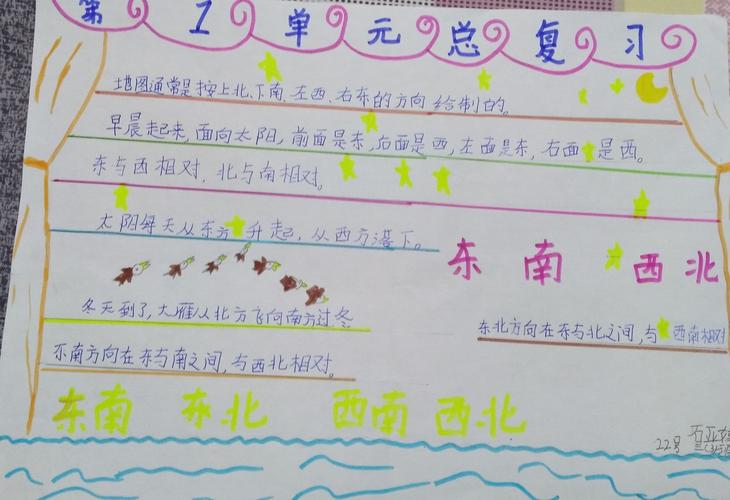 第1单元总复习
地图通常是按上北、下南、左西、右东的方向绘制的。
早晨起来,面向太阳,前面是东,后面是西,左面是东,右面是西。
东与西相对,北与南相对。
太阳每天从东方升起,从西方落下。
东 南 西 北
冬天到了,大雁从北方飞向南方过冬
东北方向在东与北之间,与西南相对
东南方向在东与南之间,与西北相对。
东南 东北 西南 西北
22号